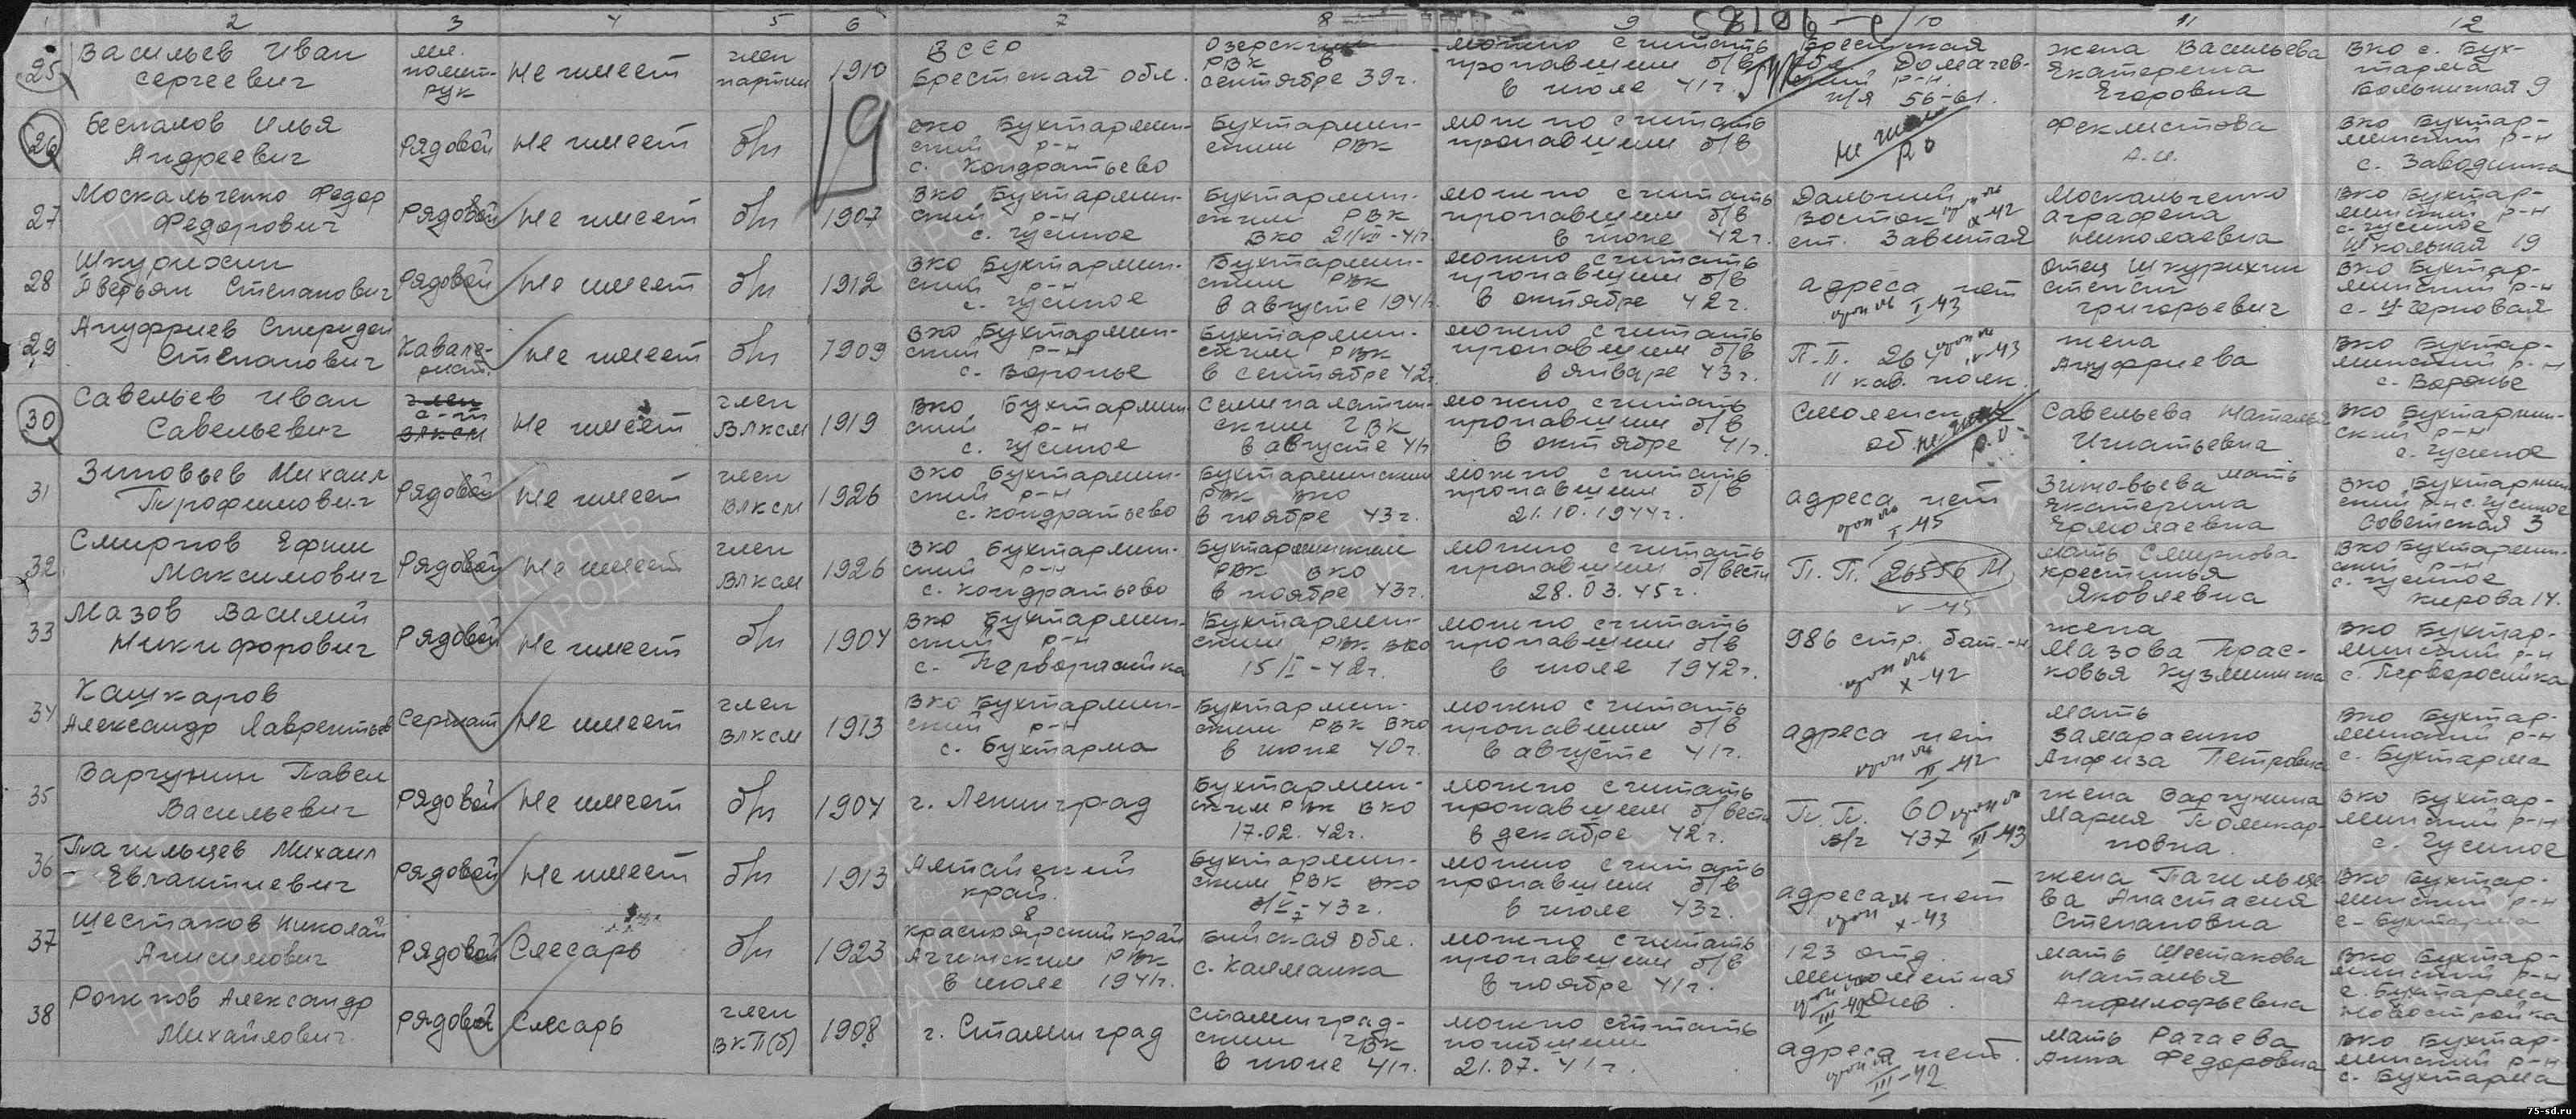 1 2 3 4 5 6 7 8 9 10 11 12
25 Васильев Иван Сергеевич мл. полит-рук Не имеет член партии 1910 БССР Брестская обл. Озерским РВК в сентябре 39г. можно считать пропавшим б/в в июле 41г. Брестская обл. р-н п/я 56-61. жена Васильева Екатерина Егоровна ВКО с. Бух-тарма Больничная 9
26 Беспалов Илья Андреевич Рядовой Не имеет б/п ВКО Бухтармин-ский р-н с. Кондратьево Бухтармин-ским РВК можно считать пропавшим б/в Феклистова А.И. ВКО Бухтар-минский р-н с. Заводинка
27 Москальченко Федор Федорович Рядовой Не имеет б/п 1907 ВКО Бухтармин-ский р-н с. Гусиное Бухтармин-ским РВК ВКО можно считать пропавшим б/в в июне 42г. Дальний Восток ст. Завитая Москальченко Аграфена Николаевна ВКО Бухтар-минский р-н с. Гусиное Школьная 19
28 Шкурихин Аверьян Степанович Рядовой Не имеет б/п 1912 ВКО Бухтармин-ский р-н с. Гусиное Бухтармин-ским РВК в августе 1941г. можно считать пропавшим б/в в октябре 42г. адреса нет I-43 отец Шкурихин Степан Григорьевич ВКО Бухтар-минский р-н с. Черновая
29 Ануфриев Спиридон Степанович Кавале-рист. Не имеет б/п 1909 ВКО Бухтармин-ский р-н с. Воронье Бухтармин-ским РВК в сентябре 42г. можно считать пропавшим б/в в январе 43г. П.П. 264 11 кав. полк. жена Ануфриева ВКО Бухтар-минский р-н с. Воронье
30 Савельев Иван Савельевич Не имеет член ВЛКСМ 1919 ВКО Бухтармин-ский р-н с. Гусиное Семипалатин-ским ГВК в августе 41г. можно считать пропавшим б/в в октябре 41г. Смоленск об Савельева Наталья Игнатьевна ВКО Бухтармин-ский р-н с. Гусиное
31 Зиновьев Михаил Трофимович Рядовой Не имеет член ВЛКСМ 1926 ВКО Бухтармин-ский р-н с. Кондратьево Бухтарминским РВК ВКО в ноябре 43г. можно считать пропавшим б/в 21.10.1944г. адреса нет I-45 мать Зиновьева Екатерина Ермолаевна ВКО Бухтармин-ский р-н с. Гусиное Советская 3
32 Смирнов Ефим Максимович Рядовой Не имеет член ВЛКСМ 1926 ВКО Бухтармин-ский р-н с. Кондратьево Бухтарминский РВК ВКО в ноябре 43г. можно считать пропавшим б/вести 28.03.45г. П.П. 26556 М V-45 мать Смирнова Крестинья Яковлевна ВКО Бухтармин-ский р-н с. Гусиное Кирова 14.
33 Мазов Василий Никифорович Рядовой Не имеет б/п 1904 ВКО Бухтармин-ский р-н с. Первороссийка Бухтармин-ским РВК ВКО 15/I-42г. можно считать пропавшим б/в в июле 1942г. 986 стр. бат-н X-42 жена Мазова Прас-ковья Кузьминична ВКО Бухтар-минский р-н с. Первороссийка
34 Кашкаров Александр Лаврентьев Сержант Не имеет член ВЛКСМ 1913 ВКО Бухтармин-ский р-н с. Бухтарма Бухтармин-ским РВК ВКО в июне 40г. можно считать пропавшим б/в в августе 41г. адреса нет II-42 мать Замараенко Анфиза Петровна ВКО Бухтар-минский р-н с. Бухтарма
35 Варгунин Павел Васильевич Рядовой Не имеет б/п 1904 г. Ленинград Бухтармин-ским РВК ВКО 17.02.42г. можно считать пропавшим б/вести в декабре 42г. П.П. 60 в/ч 437 III-43 жена Варгунина Мария Поликар-повна. ВКО Бухтар-минский р-н с. Гусиное
36 Пагильцев Михаил Рядовой Не имеет б/п 1913 Алтайский край. Бухтармин-ским РВК ВКО можно считать пропавшим б/в в июле 43г. адреса нет X-43 жена Пагильце-ва Анастасия Степановна ВКО Бухтар-минский р-н с. Бухтарма
37 Шестаков Николай Анисимович Рядовой Слесарь б/п 1923 Красноярский край Ачинским РВК в июле 1941г. Бийская обл. с. Калманка можно считать пропавшим б/в в ноябре 41г. 123 отд. минометная див. III-42 мать Шестакова Наталья Анфилофьевна ВКО Бухтар-минский р-н с. Бухтарма Новостройка
38 Рожков Александр Михайлович. Рядовой Слесарь член ВКП(б) 1908 г. Сталинград Сталинград-ским ГВК в июне 41г. можно считать погибшим 21.07.41г. адреса нет. III-42 мать Рагаева Анна Федоровна ВКО Бухтар-минский р-н с. Бухтарма
ПАМЯТЬ НАРОДА
75-sd.ru